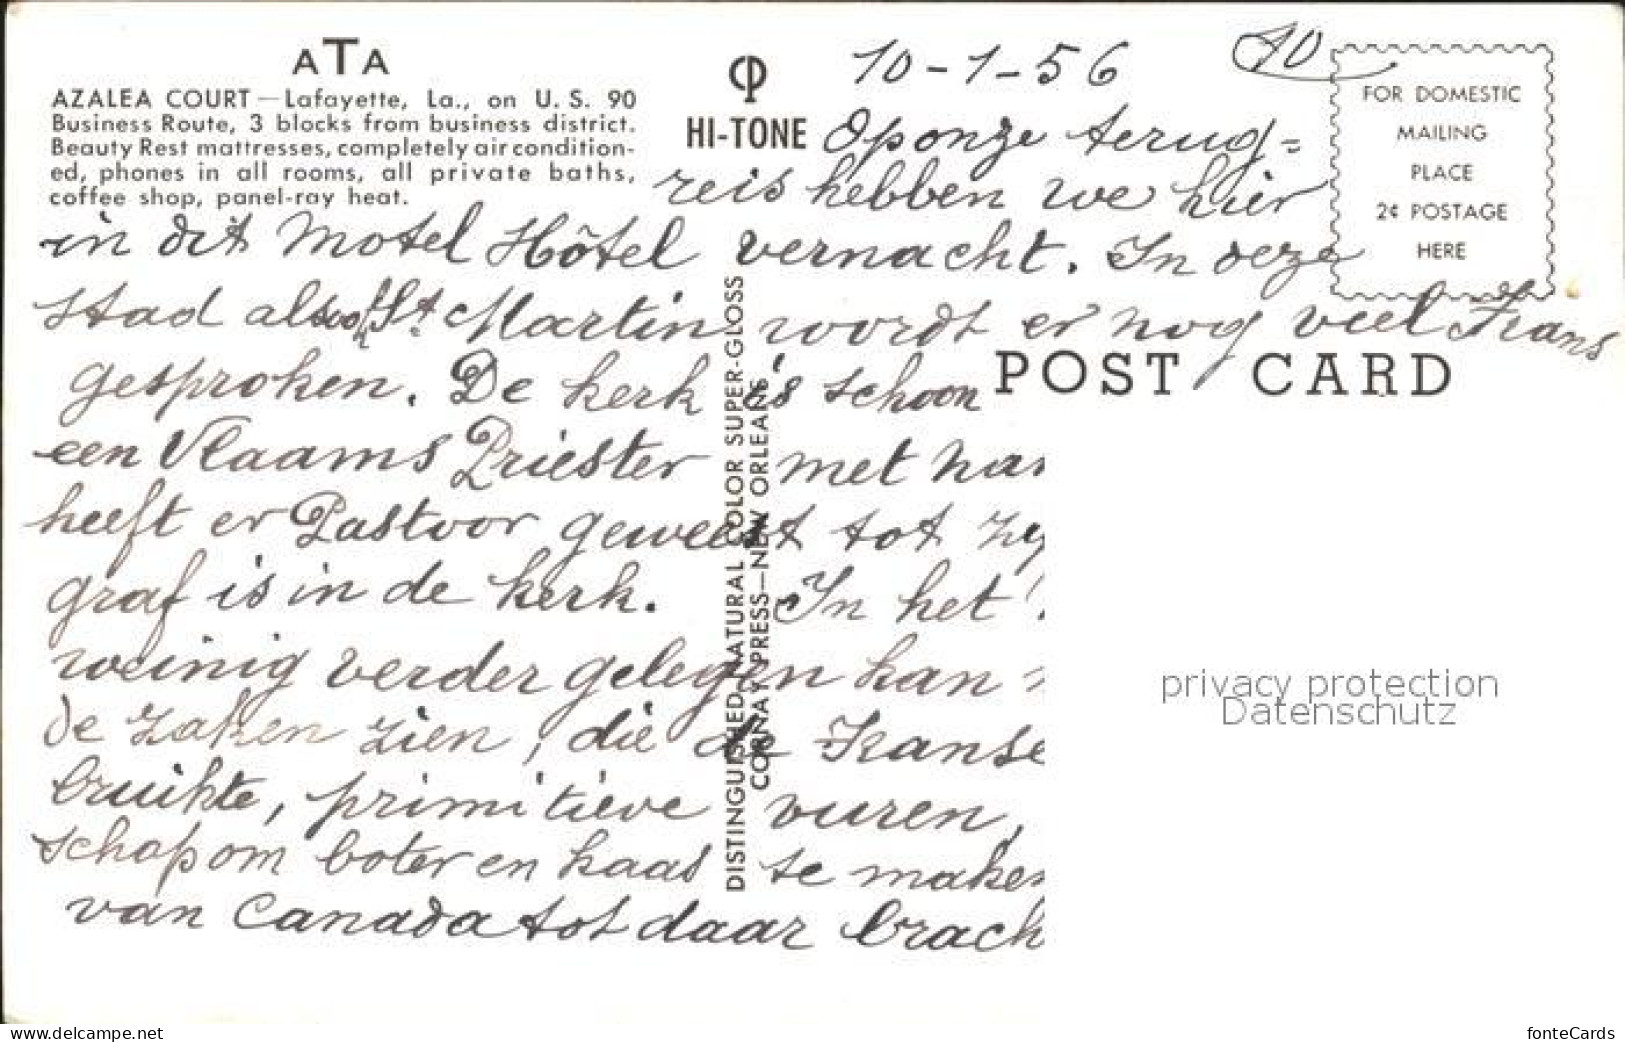 ATA
AZALEA COURT — Lafayette, La., on U. S. 90
Business Route, 3 blocks from business district.
Beauty Rest mattresses, completely air condition-
ed, phones in all rooms, all private baths,
coffee shop, panel-ray heat.
HI-TONE
10-1-56
FOR DOMESTIC
MAILING
PLACE
2¢ POSTAGE
HERE
Op onze terug=
reis hebben we hier
in dit Motel Hôtel vernacht. In deze
stad alsook St. Martin wordt er nog veel Frans
gesproken. De kerk is schoon
een Vlaams Priester met
heeft er Pastoor geweest tot
graf is in de kerk. In het
weinig verder gelegen kan
de zaken zien, die de Franse
bruikte, primitieve vuren,
schap om boter en kaas te maken
van Canada tot daar brach
DISTINGUISHED NATURAL COLOR SUPER-GLOSS
CORNAY PRESS—NEW ORLEANS
POST CARD
privacy protection
Datenschutz
www.delcampe.net
fonteCards